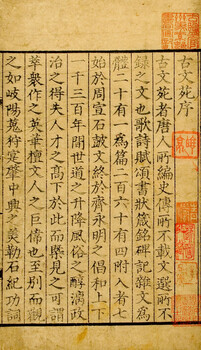 古文苑序
古文苑者唐人所編史傳所不載文選所不
錄之文也歌詩賦頌書狀箴銘碑記雜文爲
體二十有一爲篇二百六十有四附入者七
始於周宣石鼓文終於齊永明之倡和上下
一千三百年間世道之升降風俗之醇漓政
治之得失人才之高下於此而槩見之可謂
萃衆作之英華擅文人之巨偉也至別而觀
之如岐陽蒐狩宣肇中興之美勒石紀功詞